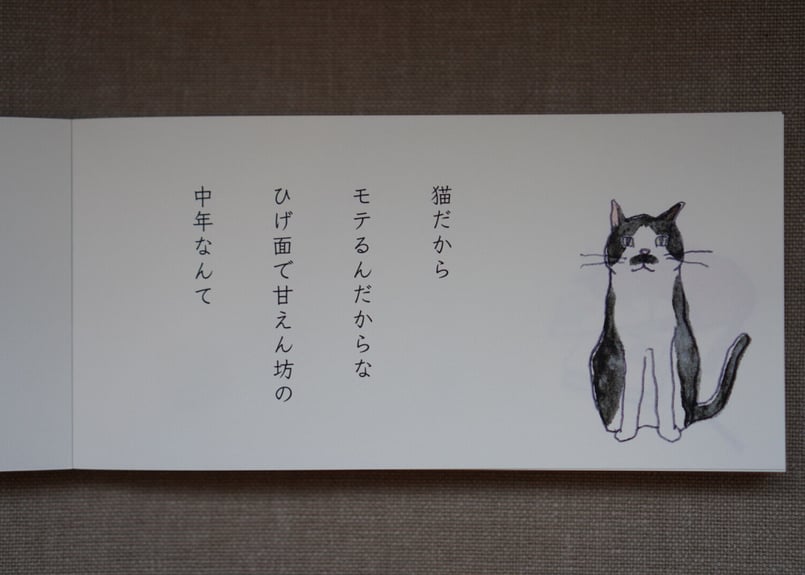 猫だから
モテるんだからな
ひげ面で甘えん坊の
中年なんて